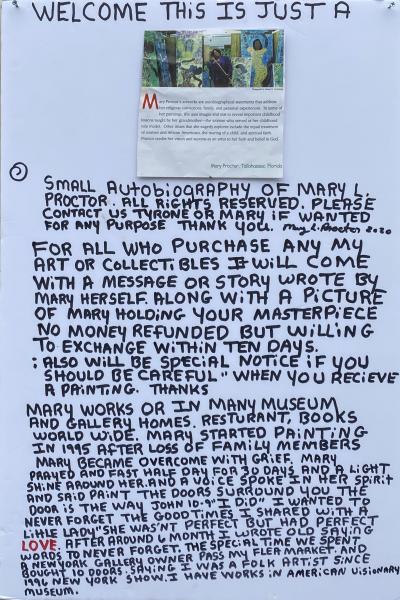 WELCOME THIS IS JUST A
Mary Proctor's artworks are autobiographical statements that address
her religious convictions, family, and personal experiences. In some of
her paintings, she uses images and text to reveal important childhood
lessons taught by her grandmother—the woman who served as her childhood
role model. Other issues that she eagerly explores include the equal treatment
of women and African Americans, the rearing of a child, and spiritual faith.
Proctor credits her vision and success as an artist to her faith and belief in God.
Mary Proctor, Tallahassee, Florida
SMALL AUTOBIOGRAPHY OF MARY L.
PROCTOR. ALL RIGHTS RESERVED. PLEASE
CONTACT US TYRONE OR MARY IF WANTED
FOR ANY PURPOSE THANK YOU. Mary L. Proctor 2020
FOR ALL WHO PURCHASE ANY MY
ART OR COLLECTIBLES IT WILL COME
WITH A MESSAGE OR STORY WROTE BY
MARY HERSELF. ALONG WITH A PICTURE
OF MARY HOLDING YOUR MASTERPIECE
NO MONEY REFUNDED BUT WILLING
TO EXCHANGE WITHIN TEN DAYS.
: ALSO WILL BE SPECIAL NOTICE IF YOU
SHOULD BE CAREFUL" WHEN YOU RECIEVE
A PAINTING. THANKS
MARY WORKS OR IN MANY MUSEUM
AND GALLERY HOMES. RESTURANT, BOOKS
WORLD WIDE. MARY STARTED PAINTING
IN 1995 AFTER LOSS OF FAMILY MEMBERS
MARY BECAME OVERCOME WITH GRIEF. MARY
PRAYED AND FAST HALF DAY FOR 30 DAYS AND A LIGHT
SHINE AROUND HER. AND A VOICE SPOKE IN HER SPIRIT
AND SAID PAINT THE DOORS SURROUND YOU THE
DOOR IS THE WAY JOHN 10.9" I DID" I WANTED TO
NEVER FORGET THE GOOD TIMES I SHARED WITH A
LITTLE LADY" SHE WASN'T PERFECT BUT HAD PERFECT
LOVE. AFTER AROUND 6 MONTH I WROTE OLD SAYING
WORDS TO NEVER FORGET. THE SPECIAL TIME WE SPENT
A NEW YORK GALLERY OWNER PASS MY FLEA MARKET. AND
BOUGHT 10 DOORS. SAYING I WAS A FOLK ARTIST SINCE
1996 NEW YORK SHOW. I HAVE WORKS IN AMERICAN VISIONARY
MUSEUM.